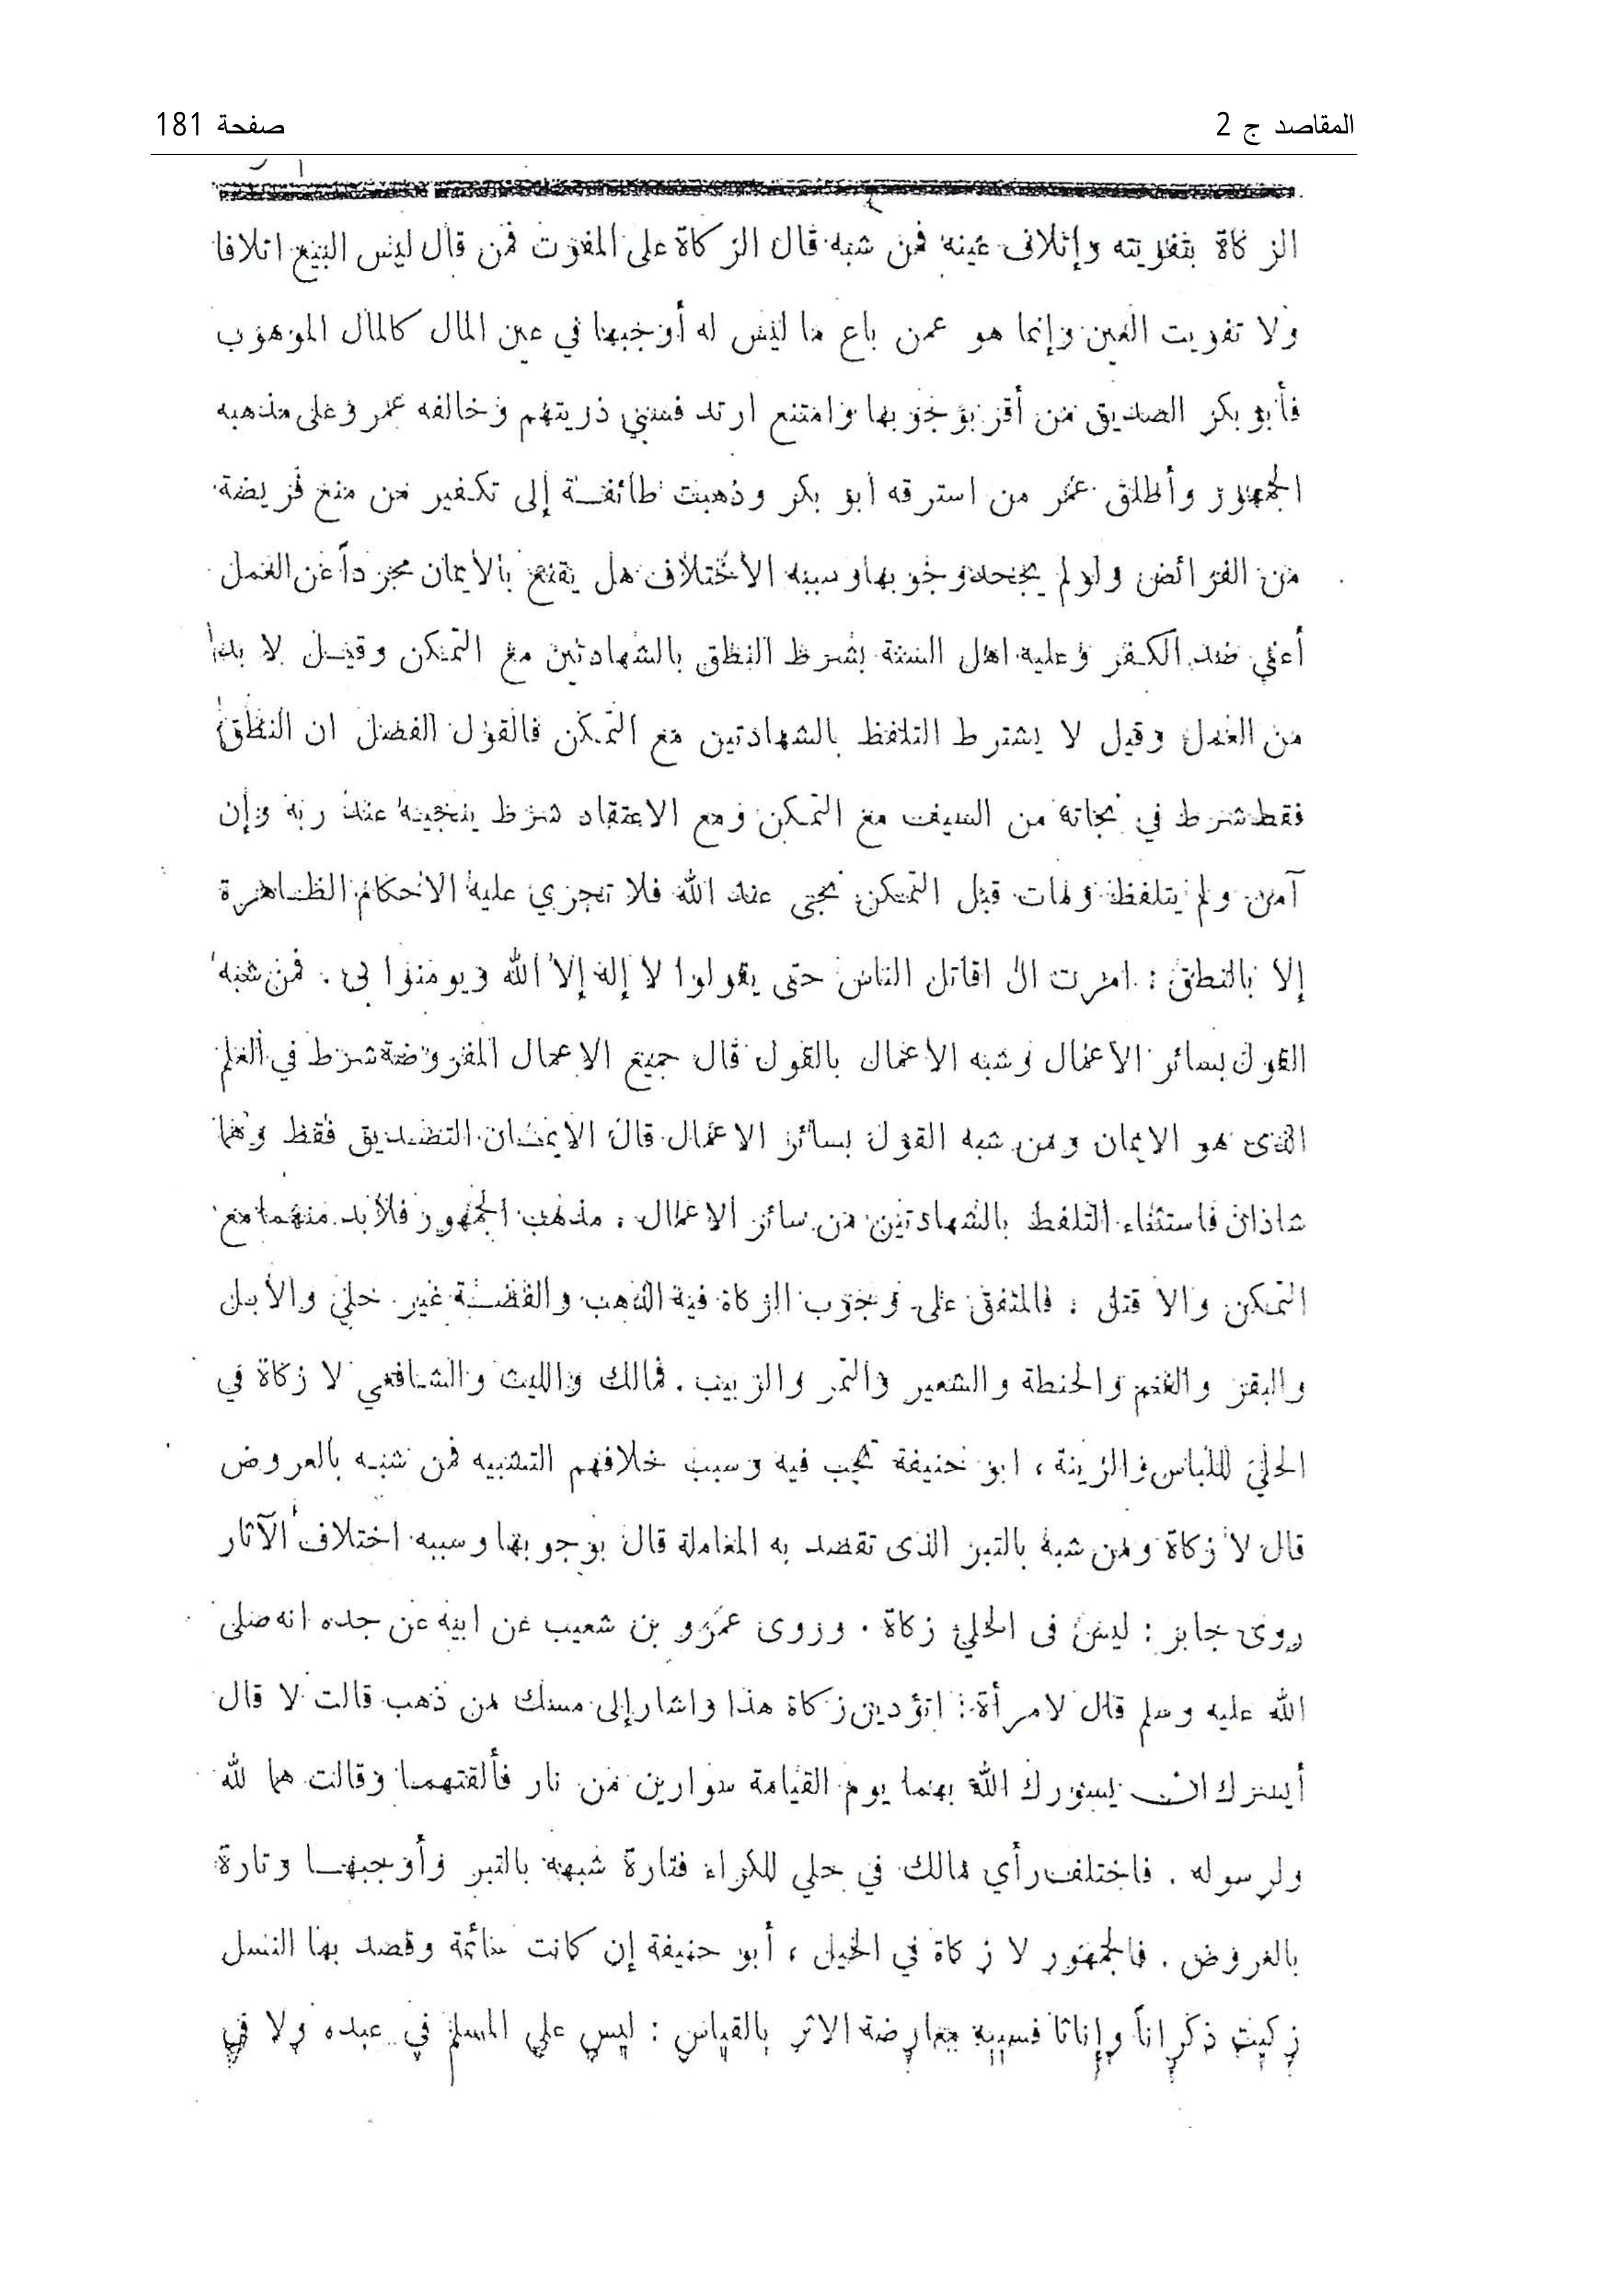 المقاصد ج 2 صفحة 181
الزكاة بتفويته وإتلاف عينه فمن شبه قال الزكاة على المفوت فمن قال ليس البيع اتلافا
ولا تفويت العين وإنما هو عمن باع ما ليس له أوجبها في عين المال كالمال الموهوب
فأبو بكر الصديق من أقر بوجوبها وامتنع ارتد فسبي ذريتهم وخالفه عمر وعلى مذهبه
الجمهور وأطلق عمر من استرقه ابو بكر وذهبت طائفة إلى تكفير من منع فريضة
من الفرائض ولو لم يجحد وجوبها وسببه الاختلاف هل يقنع بالايمان مجرداً عن العمل
أعني ضد الكفر وعليه اهل السنة بشرط النطق بالشهادتين مع التمكن وقيل لا بد
من العمل وقيل لا يشترط التلفظ بالشهادتين مع التمكن فالقول الفصل ان النطق
فقط شرط في نجاته من السيف مع التمكن ومع الاعتقاد شرط ينجيه عند ربه وإن
آمن ولم يتلفظ ومات قبل التمكن نجى عند الله فلا تجري عليه الاحكام الظاهرة
إلا بالنطق : امرت ان اقاتل الناس حتى يقولوا لا إله إلا الله ويومنوا بى . فمن شبه
القول بسائر الاعمال وشبه الاعمال بالقول قال جميع الاعمال المفروضة شرط في العلم
الذى هو الايمان ومن شبه القول بسائر الاعمال قال الايمان التصديق فقط وهما
شاذان فاستثناء التلفظ بالشهادتين من سائر الاعمال ، مذهب الجمهور فلابد منهما مع
التمكن والا قتل : فالمتفق على وجوب الزكاة فيه الذهب والفضة غير حلي والابل
والبقر والغنم والحنطة والشعير والتمر والزبيب . فمالك والليث والشافعي لا زكاة في
الحلي للباس والزينة ، ابو حنيفة تجب فيه وسبب خلافهم التشبيه فمن شبه بالعروض
قال لا زكاة ومن شبه بالتبر الذى تقصد به المعاملة قال بوجوبها وسببه اختلاف الآثار
روى جابر : ليس فى الحلي زكاة . وروى عمرو بن شعيب عن ابيه عن جده انه صلى
الله عليه وسلم قال لامرأة : اتؤدين زكاة هذا واشار إلى مسك من ذهب قالت لا قال
أيسرك ان يسورك الله بهما يوم القيامة سوارين من نار فألقتهما وقالت هما لله
ولرسوله . فاختلف رأي مالك في حلي للكراء فتارة شبهه بالتبر وأوجبها وتارة
بالعروض . فالجمهور لا زكاة في الخيل ، أبو حنيفة إن كانت سائمة وقصد بها النسل
زكيت ذكراناً وإناثا فسببه معارضة الاثر بالقياس : ليس على المسلم في عبده ولا في